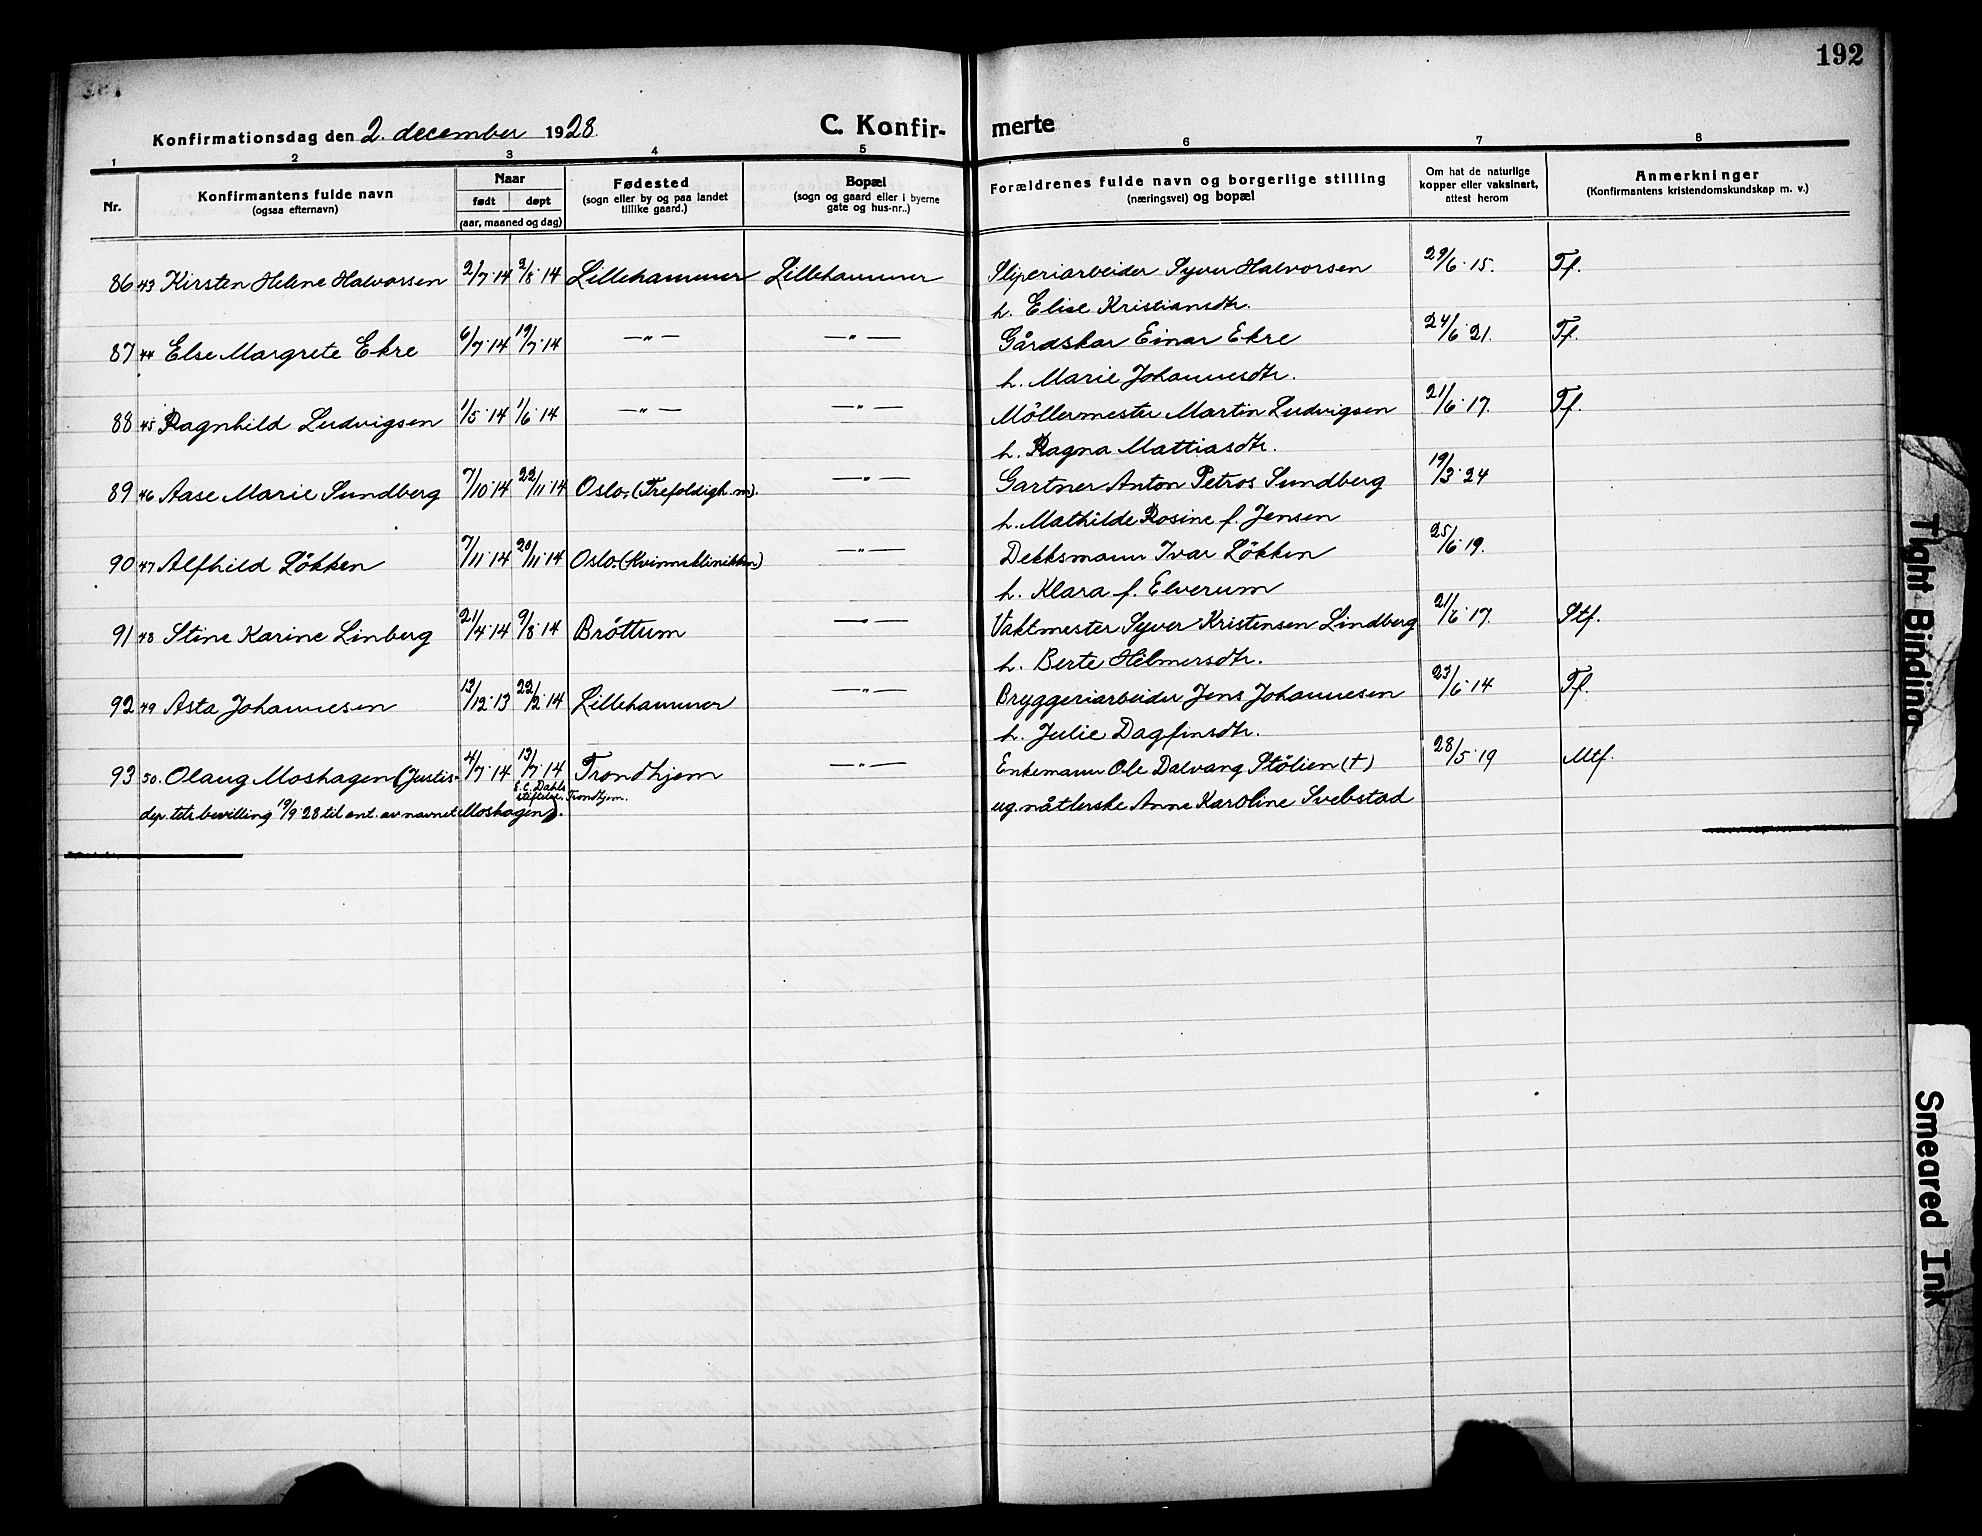 192
Konfirmationsdag den 2. december 1928.
C. Konfir- merte
1 2 3 4 5 6 7 8
Nr.
Konfirmantens fulde navn
(ogsaa efternavn)
Naar
født døpt
(aar, maaned og dag)
Fødested
(sogn eller by og paa landet
tillike gaard.)
Bopæl
(sogn og gaard eller i byerne
gate og hus-nr..)
Forældrenes fulde navn og borgerlige stilling
(næringsvei) og bopæl
Om hat de naturlige
kopper eller vaksinert,
attest herom
Anmerkninger
(Konfirmantens kristendomskundskap m. v.)
86 43 Kirsten Helene Halvorsen 2/7·14 2/8·14 Lillehammer Lillehammer Sliperiarbeider Syver Halvorsen 29/6·15. Tf.
h. Elise Kristiansdtr.
87 44 Else Margrete Ekre 6/7·14 19/7·14 —"— —"— Gårdskar Einar Ekre 24/6·21. Tf.
h. Marie Johannesdtr.
88 45 Ragnhild Ludvigsen 1/5·14 1/6·14 —"— —"— Möllermester Martin Ludvigsen 21/6·17. Tf.
h. Ragna Mattiasdtr.
89 46 Aase Marie Sundberg 7/10·14 22/11·14 Oslo. (Trefoldigh. m). —"— Gartner Anton Petros Sundberg 19/3·24
h. Mathilde Rosine f. Jensen
90 47 Alfhild Lökken 7/11·14 20/11·14 Oslo. (Kvinneklinikken) —"— Dekksmann Ivar Lökken 25/6·19.
h. Klara f. Elverum
91 48 Stine Karine Linberg 21/4·14 9/8·14 Bröttum —"— Vaktmester Syver Kristensen Lindberg 21/6·17. Stf.
h. Berte Hilmersdtr.
92 49 Asta Johannesen 13/12·13 22/2·14 Lillehammer —"— Bryggeriarbeider Jens Johannesen 23/6·14 Tf.
h. Julie Dagfinsdtr.
93 50. Olaug Moshagen (Justis- 4/7·14 13/7·14 Trondhjem —"— Enkemann Ole Dalvang Stölien (†) 28/5·19 Mtf.
E. C. Dahls
stiftelse, Trondhjem.
dep. tets bevilling 19/9 28 til ant. av navnet Moshagen). ug. nåtlerske Anne Karoline Svebstad
Tight Binding
Smeared Ink